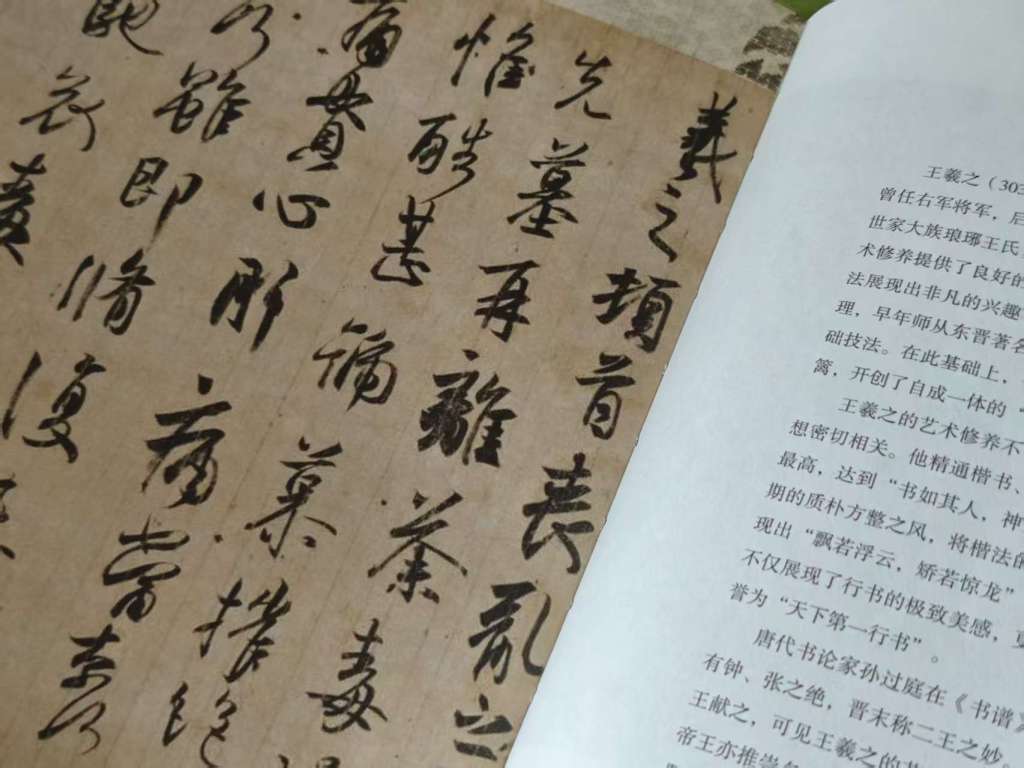 羲之頓首喪亂之
先墓再離荼毒
惟酷甚號慕摧絕
痛貫心肝痛當奈何
雖即脩復
馳哀毒
王羲之（303
曾任右军将军，后
世家大族琅琊王氏
术修养提供了良好的
法展现出非凡的兴趣
理，早年师从东晋著名
础技法。在此基础上，
篱，开创了自成一体的“
王羲之的艺术修养不
想密切相关。他精通楷书、
最高，达到“书如其人，神
期的质朴方整之风，将楷法的
现出“飘若浮云，矫若惊龙”
不仅展现了行书的极致美感，更
誉为“天下第一行书”。
唐代书论家孙过庭在《书谱》
有钟、张之绝，晋末称二王之妙。
王献之，可见王羲之的
帝王亦推崇